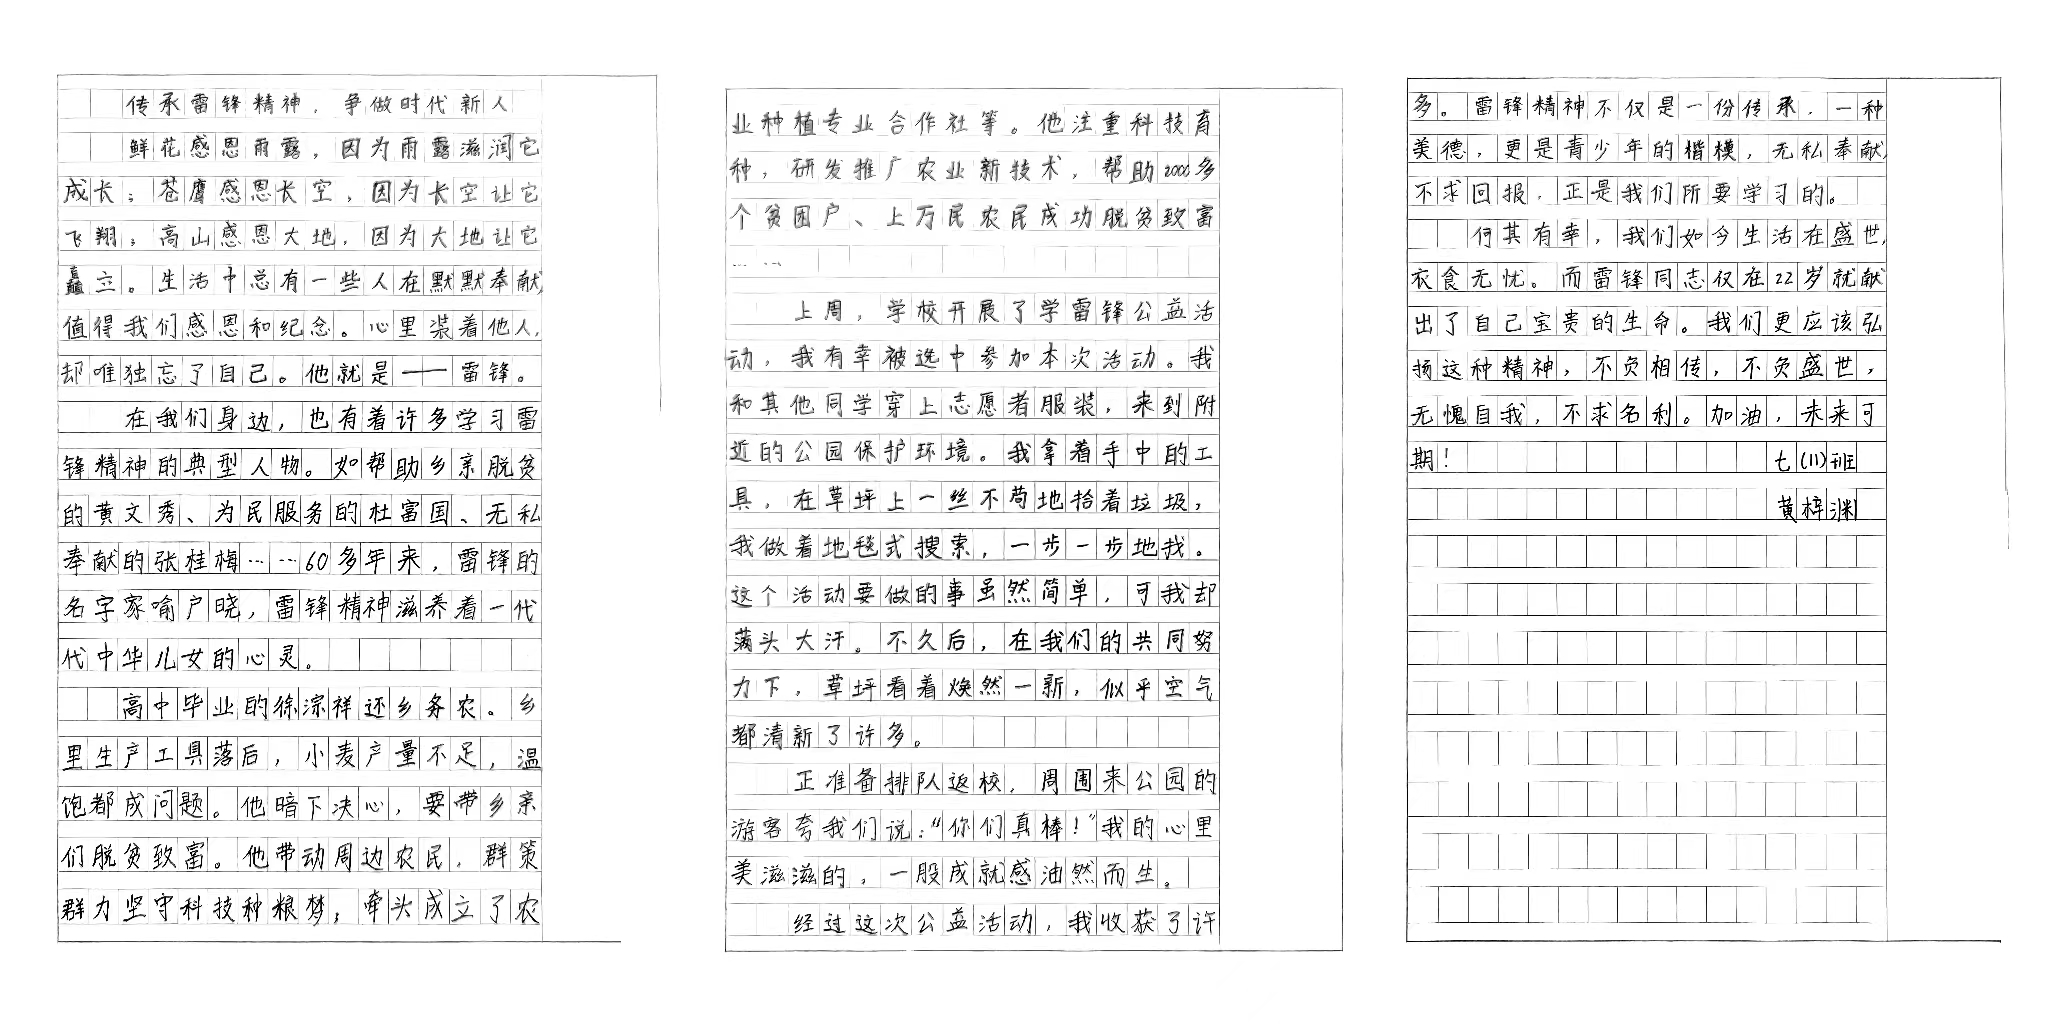 传承雷锋精神，争做时代新人
鲜花感恩雨露，因为雨露滋润它
成长；苍鹰感恩长空，因为长空让它
飞翔；高山感恩大地，因为大地让它
矗立。生活中总有一些人在默默奉献，
值得我们感恩和纪念。心里装着他人，
却唯独忘了自己。他就是——雷锋。
在我们身边，也有着许多学习雷
锋精神的典型人物。如帮助乡亲脱贫
的黄文秀、为民服务的杜富国、无私
奉献的张桂梅……60多年来，雷锋的
名字家喻户晓，雷锋精神滋养着一代
代中华儿女的心灵。
高中毕业的徐淙祥还乡务农。乡
里生产工具落后，小麦产量不足，温
饱都成问题。他暗下决心，要带乡亲
们脱贫致富。他带动周边农民，群策
群力坚守科技种粮梦；牵头成立了农
业种植专业合作社等。他注重科技育
种，研发推广农业新技术，帮助2000多
个贫困户、上万民农民成功脱贫致富
……
上周，学校开展了学雷锋公益活
动，我有幸被选中参加本次活动。我
和其他同学穿上志愿者服装，来到附
近的公园保护环境。我拿着手中的工
具，在草坪上一丝不苟地拾着垃圾，
我做着地毯式搜索，一步一步地找。
这个活动要做的事虽然简单，可我却
满头大汗。不久后，在我们的共同努
力下，草坪看着焕然一新，似乎空气
都清新了许多。
正准备排队返校，周围来公园的
游客夸我们说：“你们真棒！”我的心里
美滋滋的，一股成就感油然而生。
经过这次公益活动，我收获了许
多。雷锋精神不仅是一份传承，一种
美德，更是青少年的楷模，无私奉献，
不求回报，正是我们所要学习的。
何其有幸，我们如今生活在盛世，
衣食无忧。而雷锋同志仅在22岁就献
出了自己宝贵的生命。我们更应该弘
扬这种精神，不负相传，不负盛世，
无愧自我，不求名利。加油，未来可
期！ 七（11）班
黄梓渊